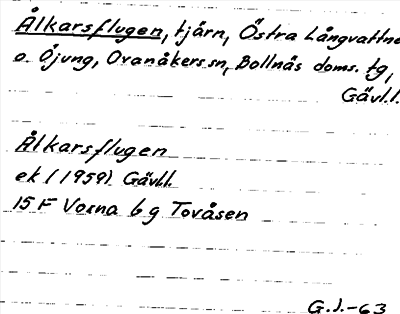 Ålkarsflugen, tjärn, Östra Långvattne
o. Öjung, Ovanåkers sn, Bollnäs doms. tg,
Gävl.l.
Ålkarsflugen
ek (1959) Gävl.l.
15 F Voxna b g Tovåsen
G.J.-63